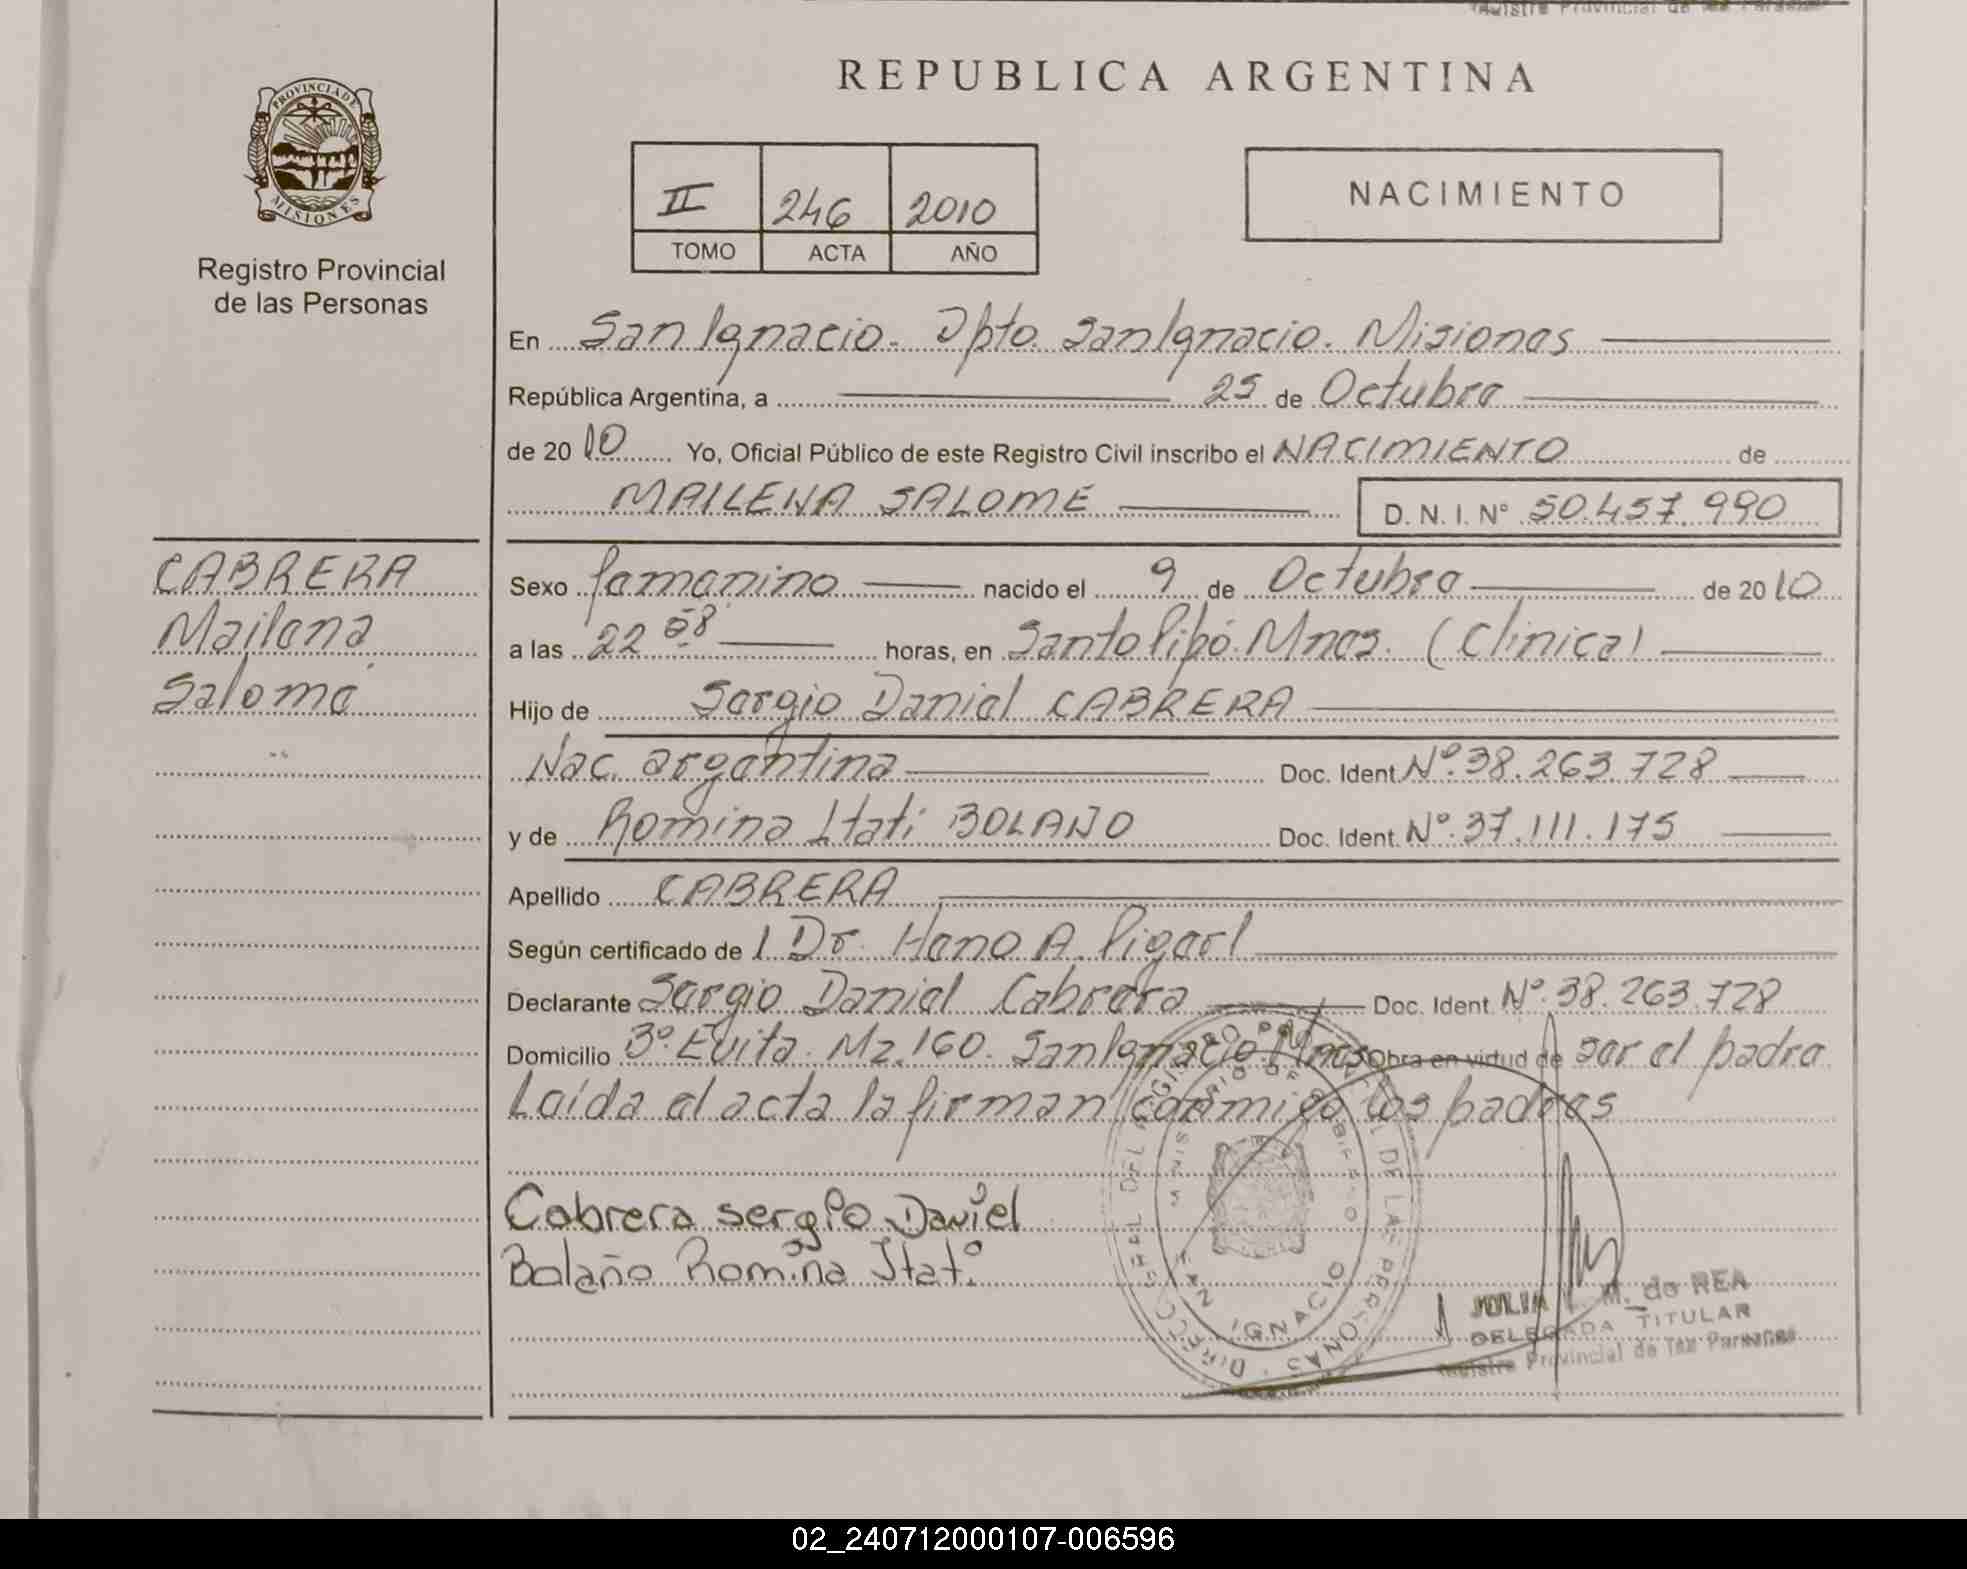 Registro Provincial de las Personas
REPUBLICA ARGENTINA
PROVINCIA DE
MISIONES
Registro Provincial
de las Personas
II 246 2010
TOMO ACTA AÑO
NACIMIENTO
En San Ignacio. Dpto San Ignacio. Misiones
República Argentina, a 25 de Octubre
de 2010 Yo, Oficial Público de este Registro Civil inscribo el NACIMIENTO de
MAILENA SALOME D. N. I. Nº 50.457.990
CABRERA
Mailena
Salomé
Sexo femenino nacido el 9 de Octubre de 2010
a las 22 08 horas, en Santo Pipó. Mnes. (Clinica)
Hijo de Sergio Daniel CABRERA
Nac. argentina Doc. Ident. Nº.38.263.728
y de Romina Itati BOLAÑO Doc. Ident. Nº.37.111.175
Apellido CABRERA
Según certificado de l Dr. Hano A. Pigerl
Declarante Sergio Daniel Cabrera Doc. Ident. Nº.38.263.728
Domicilio Bº.Evita. Mz.160. San Ignacio. Mnes Obra en virtud de ser el padre
Leída el acta la firman conmigo los padres
Cabrera sergio Daniel
Bolaño Romina Itati
DIRECC. GRAL DEL REGISTRO PROVINCIAL DE LAS PERSONAS
MINISTERIO DE GOBIERNO
SAN IGNACIO
JULIA M. de REA
DELEGADA TITULAR
Registro Provincial de las Personas
02_240712000107-006596